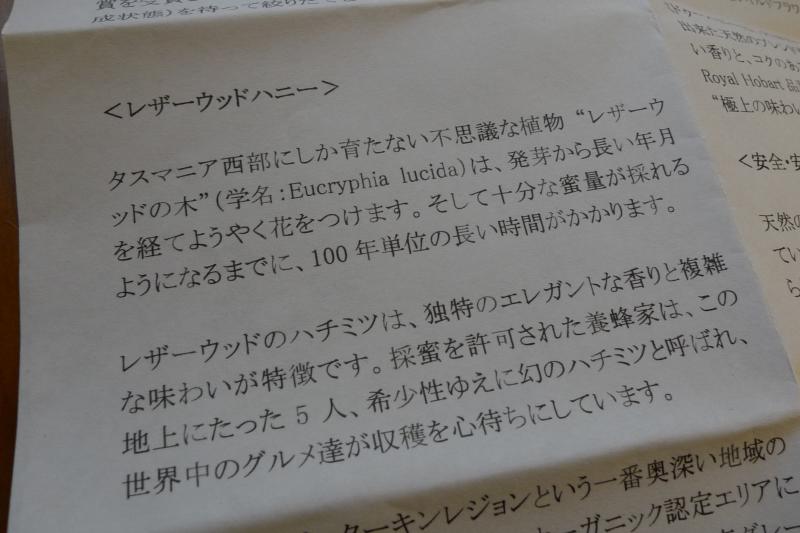 成状態)を待って絞りたて
＜レザーウッドハニー＞
タスマニア西部にしか育たない不思議な植物“レザーウ
ッドの木”(学名:Eucryphia lucida)は、発芽から長い年月
を経てようやく花をつけます。そして十分な蜜量が採れる
ようになるまでに、100 年単位の長い時間がかかります。
レザーウッドのハチミツは、独特のエレガントな香りと複雑
な味わいが特徴です。採蜜を許可された養蜂家は、この
地上にたった 5 人、希少性ゆえに幻のハチミツと呼ばれ、
世界中のグルメ達が収穫を心待ちにしています。
ターキンレジョンという一番奥深い地域の
ーガニック認定エリアに
い香りと、コクのあ
Royal Hobart 品
“極上の味わい
＜安全・安
天然の
てい
ら